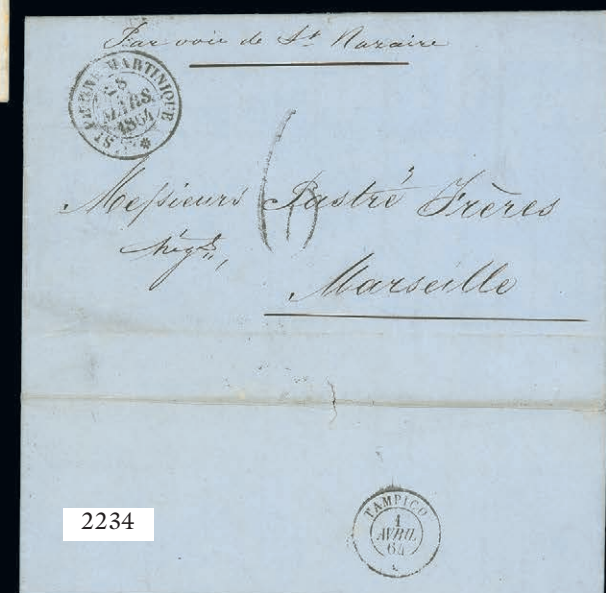 Par voie de St Nazaire
ST PIERRE MARTINIQUE
28
MARS
1864
Messieurs Pastré Frères
Négts,
Marseille
2234
TAMPICO
1
AVRIL
64